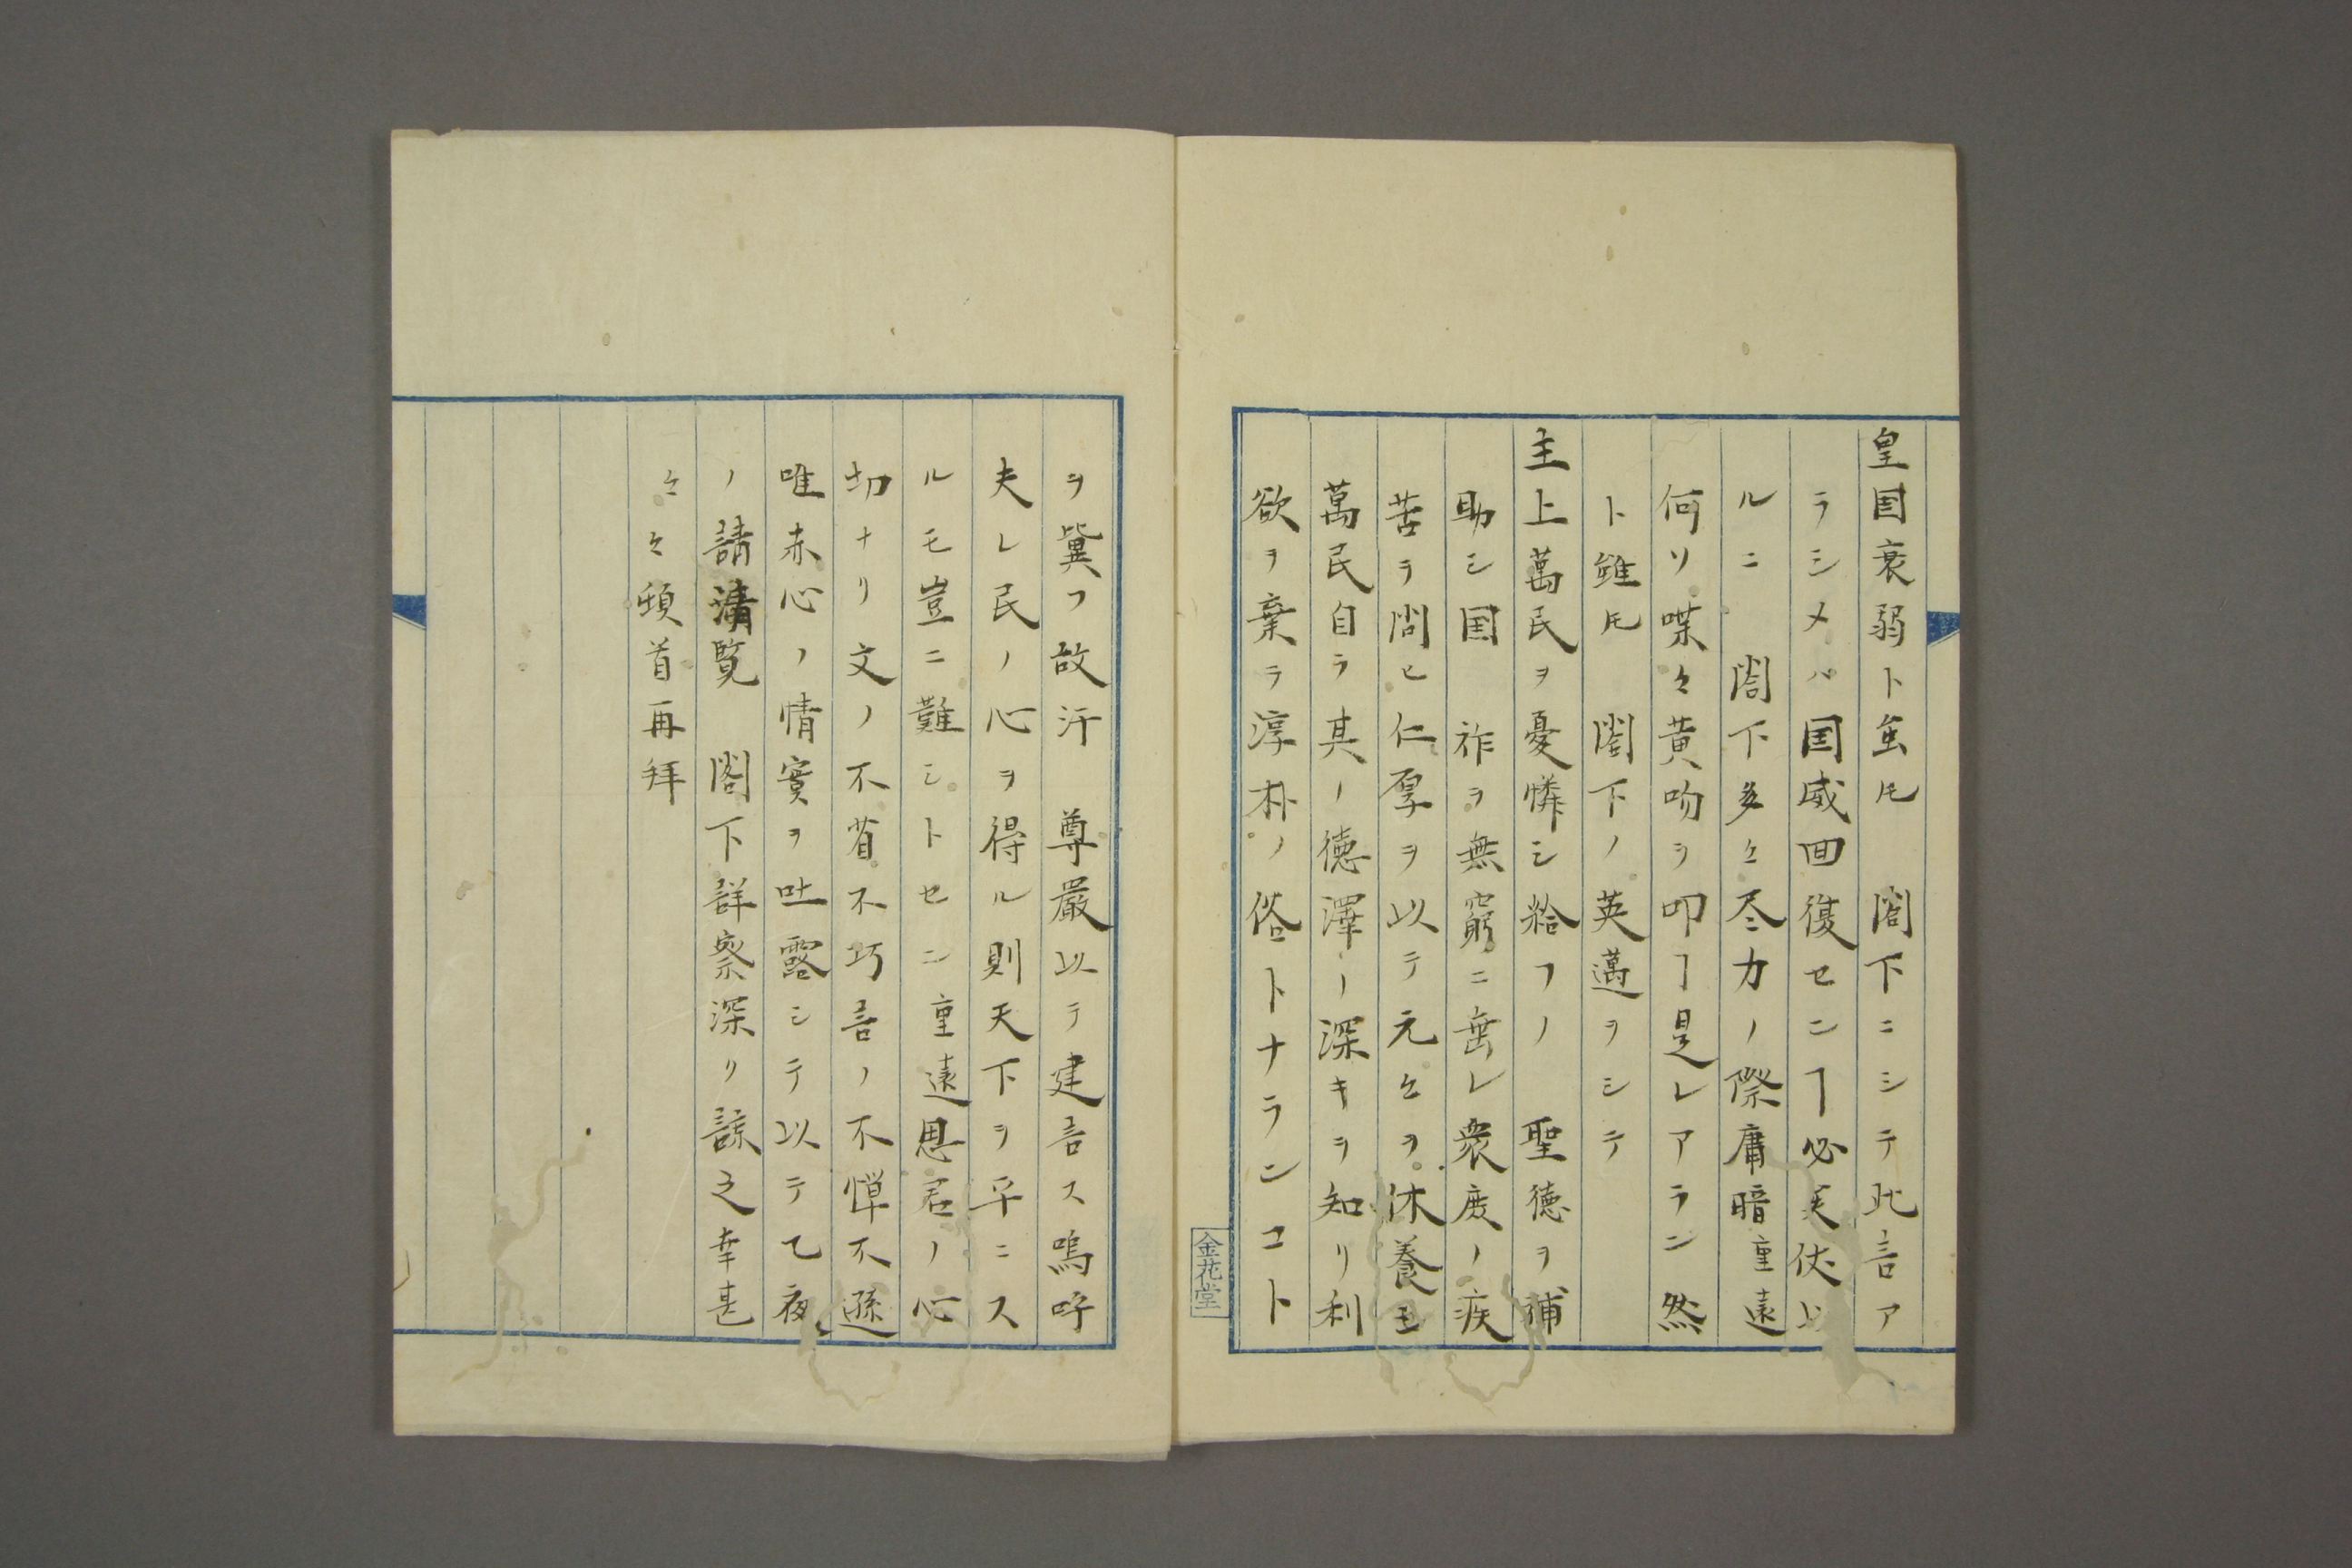 皇国衰弱ト虽𪜈　閤下ニシテ此言ア
ラシメバ国威回復センヿ必矣伏以
ルニ　閤下多々尽力ノ際庸暗重遠
何ソ喋々黄吻ヲ叩ヿ是レアラン然
ト雖𪜈　閤下ノ英邁ヲシテ
主上萬民ヲ憂憐シ給フノ　聖徳ヲ補
助シ国　祚ヲ無窮ニ垂レ衆庶ノ疾
苦ヲ問ヒ仁厚ヲ以テ元々ヲ休養セ
萬民自ラ其ノ徳澤ノ深キヲ知リ利
欲ヲ棄ラ淳朴ノ俗トナランコト
ヲ冀フ故汗　尊嚴以テ建言ス嗚呼
夫レ民ノ心ヲ得ル則天下ヲ平ニス
ルモ豈ニ難シトセン重遠思君ノ心
切ナリ文ノ不省不巧言ノ不憚不遜
唯赤心ノ情実ヲ吐露シテ以テ乙夜
ノ請清覧　閤下詳察深ク諒之幸甚
々々頓首再拜
金花堂